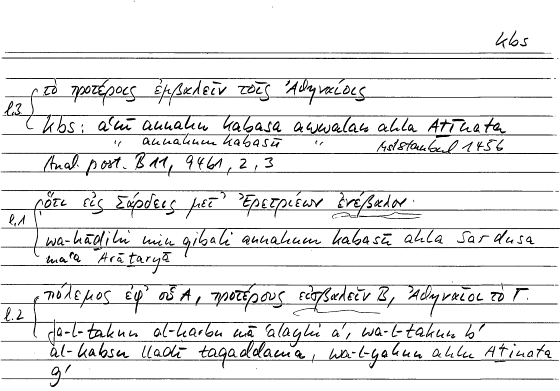 kbs
τὸ προτέρους ἐμβαλεῖν τοῖς Ἀθηναίοις
l.3
kbs: aʿnī annahu kabasa awwalan ahla Atīnata
" annahum kabasū " Hs Istanbul 1456
Anal. post. B 11, 94b1, 2, 3
ὅτι εἰς Σάρδεις μετ' Ἐρετριέων ἐνέβαλον.
l.1
wa-hādihi min qibali annahum kabasū ahla Sardusa
maʿa Arātaryā
πόλεμος ἐφ' οὗ A, προτέρους εἰσβαλεῖν B, Ἀθηναῖοι τὸ Γ.
l.2
fa-l-takun al-harbu mā ʿalayhi a', wa-l-takun b'
al-kabsu lladī taqaddama, wa-l-yakun ahlu Atīnata
g'